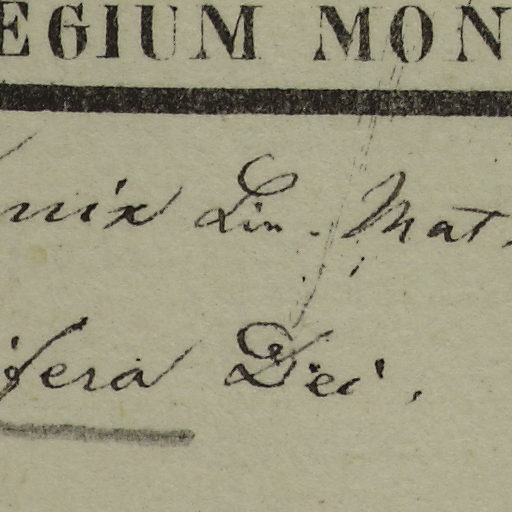 EGIUM MON
nix Lin. Mat.
ifera Dei.